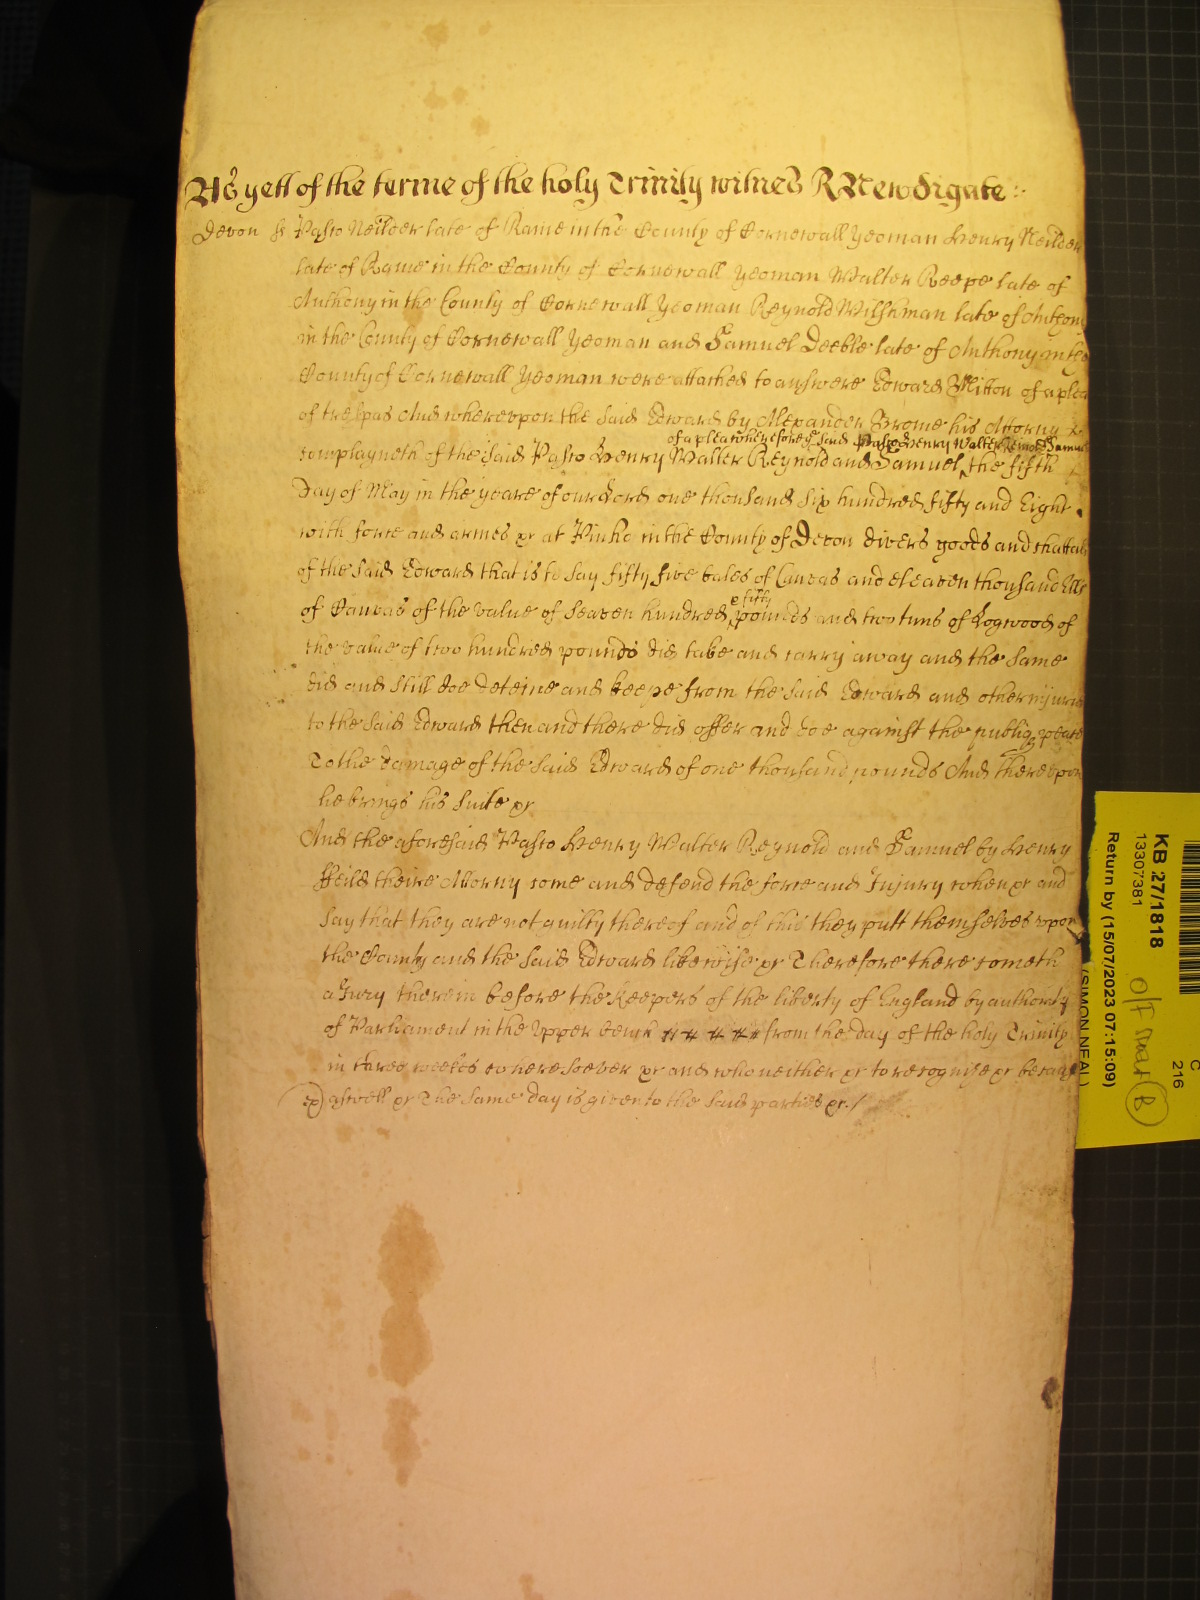 As yett of the terme of the holy Trinity witnes R Newdigate
Devon ss Pasco Neilder late of Rame in the County of Cornewall Yeoman Henry Neilder
late of Rame in the County of Cornewall Yeoman Walter Reepe late of
Anthony in the County of Cornewall Yeoman Reynold Willsman late of Anthony
in the County of Cornewall Yeoman and Samuel Deeble late of Anthony in the
County of Cornewall Yeoman were attached to answere Edward Mitton of a plea
of trespas And whereupon the said Edward by Alexander Brome his Attorny
of a plea wherefore ye said Pasco Henry Walter Samuel
complayneth of the said Pasco Henry Walter Reynold and Samuel the fifth
day of May in the yeare of our Lord one thousand six hundred fifty and Eight
with force and armes &c at Pinho in the County of Devon divers goods and chattals
of the said Edward that is to say fifty five bales of Canvas and eleaven thousand Ells
& fifty
of Canvas of the value of seaven hundred pounds and two tuns of Logwood of
the value of two hundred pounds did take and carry away and the same
did and still doe deteine and keepe from the said Edward and other injuries
to the said Edward then and there did offer and doe against the publiq peace
To the damage of the said Edward of one thousand pounds And thereupon
he brings his suite &c
And the aforesaid Pasco Henry Walter Reynold and Samuel by Henry
ffeild theire Attorny come and defend the force and Injury when &c and
say that they are not guilty thereof and of this they putt themselves upon
the County and the said Edward likewise &c Therefore there cometh
a Jury therein before the Keepers of the liberty of England by authority
of Parliament in the Upper bench from the day of the holy Trinity
in three weekes wheresoever &c and who neither &c to recognise &c because
aswell &c The same day is given to the said parties &c
KB 27/1818
13307381
Return by (15/07/2023 07:15:09)
(SIMON NEAL)
216
C